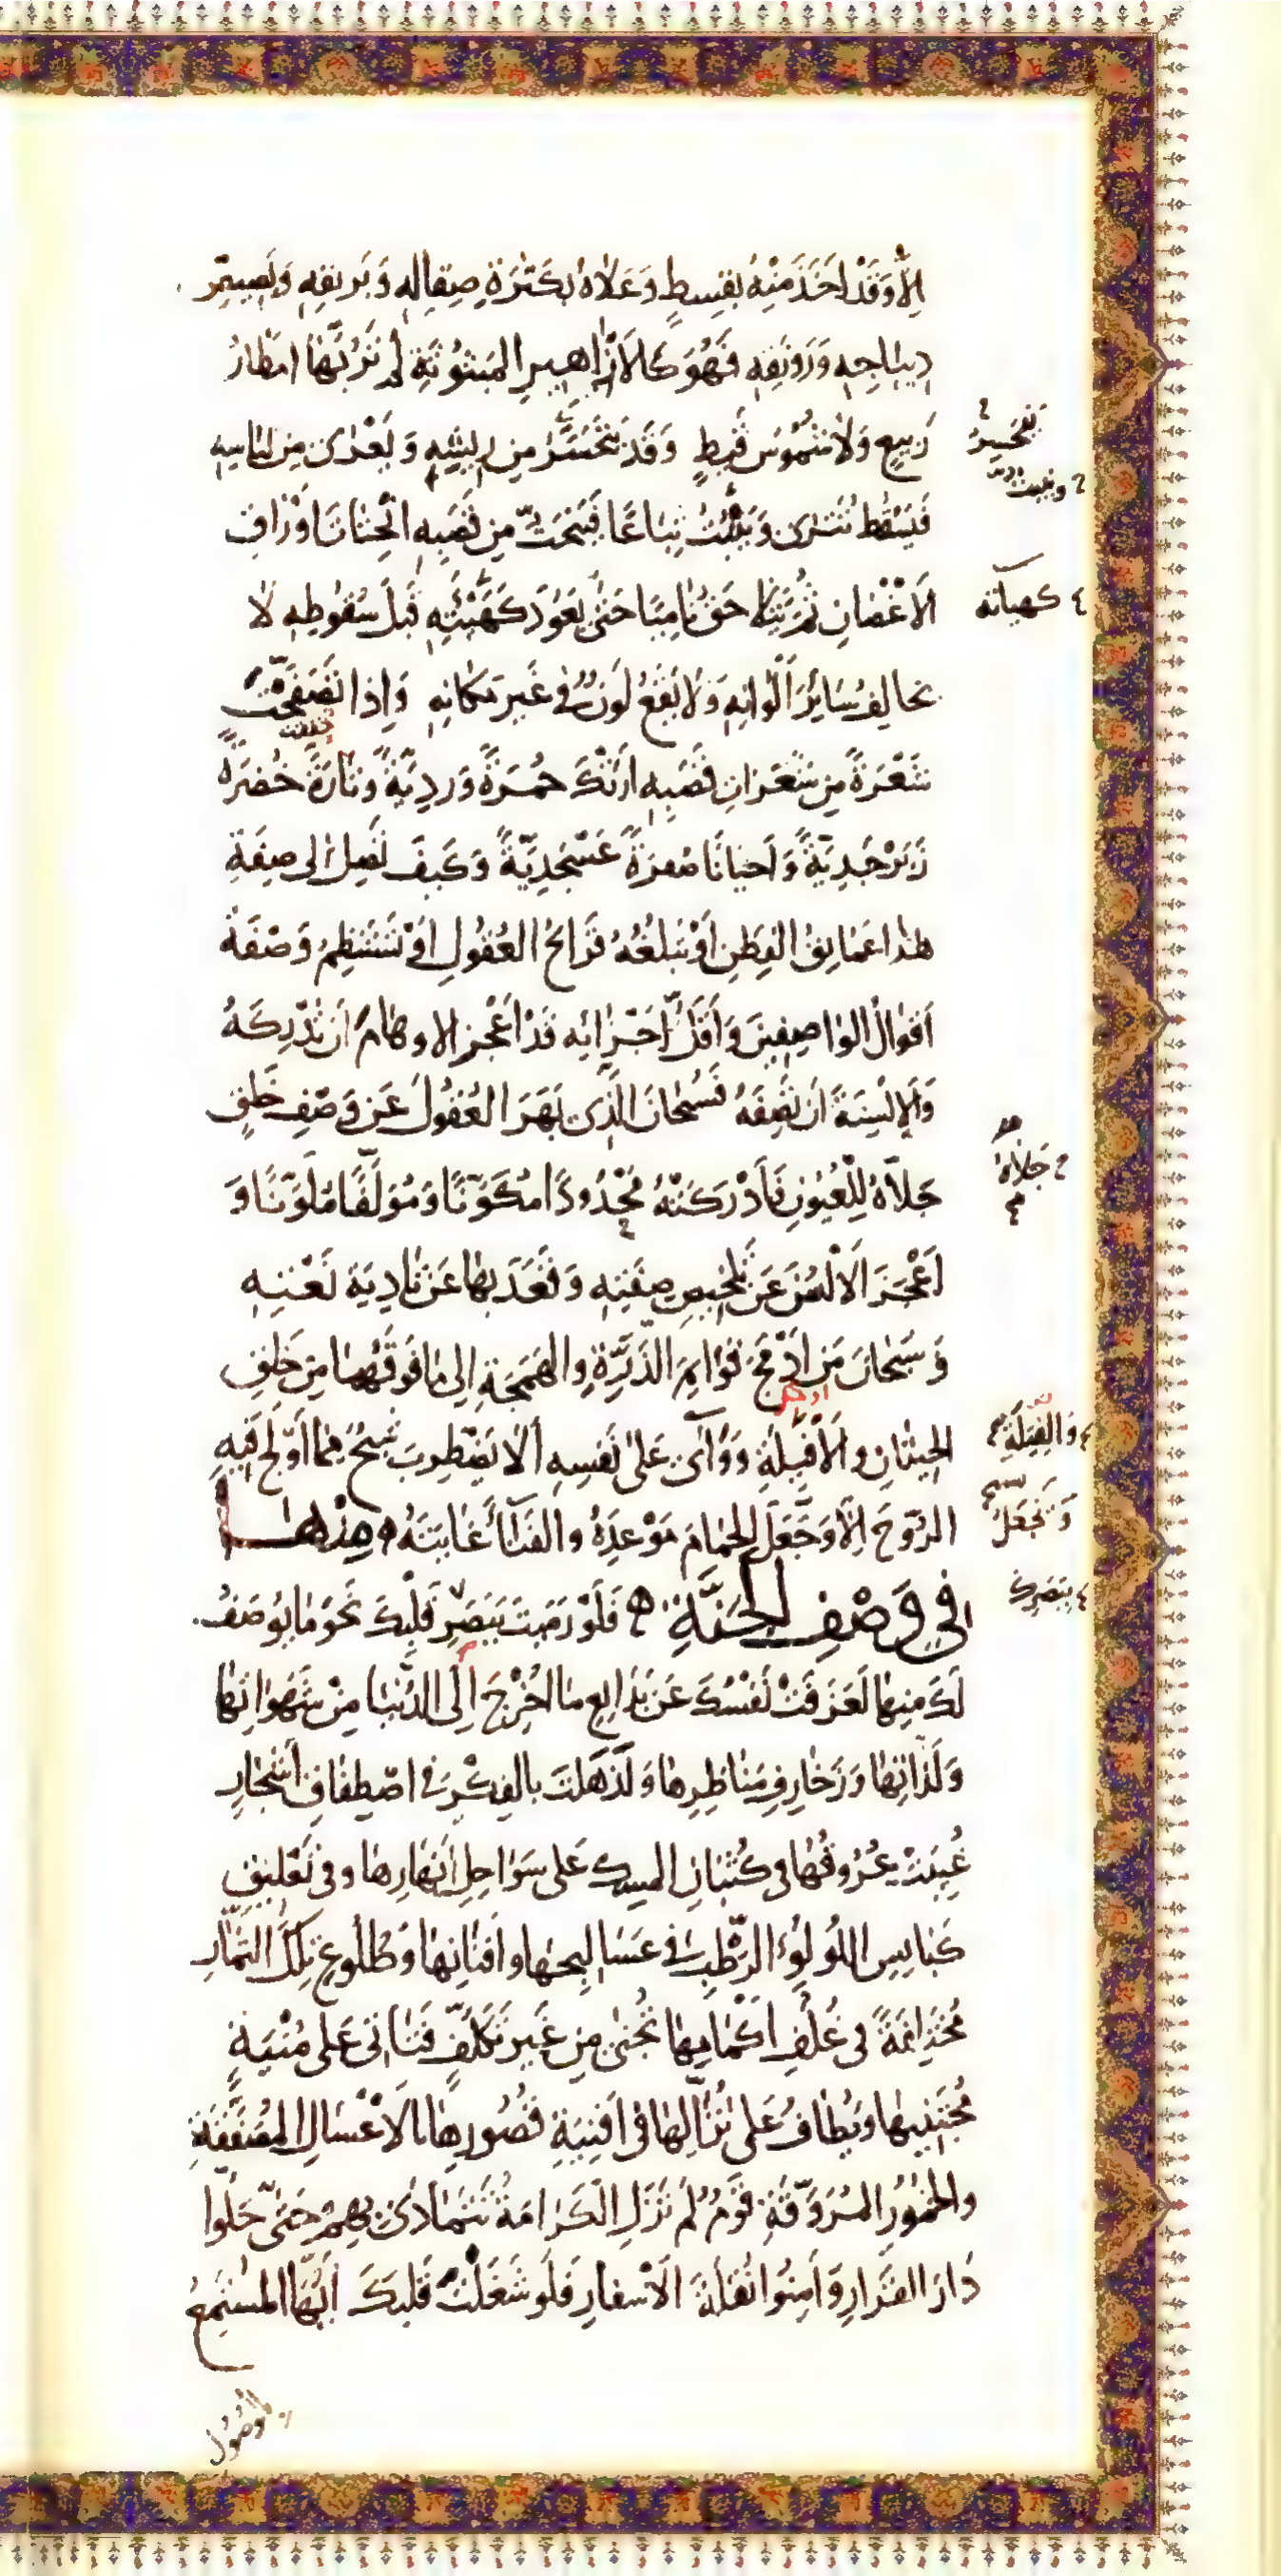 اِلَّا وَقَدْ اَخَذَ مِنْهُ بِقِسْطٍ وَعَلَاهُ بِكَثْرَةِ صِقَالِهِ وَبَرِيقِهِ وَبَصِيصِ
دِيبَاجِهِ وَرَوْنَقِهِ فَهُوَ كَالْاَزَاهِيرِ الْمَبْثُوثَةِ لَمْ تُرَبِّهَا اَمْطَارُ
رَبِيعٍ وَلَا شُمُوسُ قَيْظٍ وَقَدْ يَتَحَسَّرُ مِنْ رِيشِهِ وَيَعْرَى مِنْ لِبَاسِهِ
يَنْحَسِرُ
فَيَسْقُطُ تَتْرَى وَيَنْبُتُ تِبَاعًا فَيَنْحَتُّ مِنْ قَصَبِهِ انْحِتَاتَ اَوْرَاقِ
وينبت
الْاَغْصَانِ ثُمَّ يَتَلَاحَقُ نَامِيًا حَتَّى يَعُودَ كَهَيْئَتِهِ قَبْلَ سُقُوطِهِ لَا
كهيأته
يُخَالِفُ سَائِرَ اَلْوَانِهِ وَلَا يَقَعُ لَوْنٌ فِي غَيْرِ مَكَانِهِ وَاِذَا تَصَفَّحْتَ
شَعْرَةً مِنْ شَعَرَاتِ قَصَبِهِ اَرَتْكَ حُمْرَةً وَرْدِيَّةً وَتَارَةً خُضْرَةً
زَبَرْجَدِيَّةً وَاَحْيَانًا صُفْرَةً عَسْجَدِيَّةً وَكَيْفَ تَصِلُ اِلَى صِفَةِ
هٰذَا عَمَائِقُ الْفِطَنِ اَوْ تَبْلُغُهُ قَرَائِحُ الْعُقُولِ اَوْ تَسْتَنْظِمُ وَصْفَهُ
اَقْوَالُ الْوَاصِفِينَ وَاَقَلُّ اَجْزَائِهِ قَدْ اَعْجَزَ الْاَوْهَامَ اَنْ تُدْرِكَهُ
وَالْاَلْسِنَةَ اَنْ تَصِفَهُ فَسُبْحَانَ الَّذِي بَهَرَ الْعُقُولَ عَنْ وَصْفِ خَلْقٍ
جَلَاهُ
جَلَّاهُ لِلْعُيُونِ فَاَدْرَكَتْهُ مَحْدُودًا مُكَوَّنًا وَمُؤَلَّفًا مُلَوَّنًا وَ
اَعْجَزَ الْاَلْسُنَ عَنْ تَلْخِيصِ صِفَتِهِ وَقَعَدَ بِهَا عَنْ تَادِيَةِ نَعْتِهِ
وَسُبْحَانَ مَنْ اَدْمَجَ قَوَائِمَ الذَّرَّةِ وَالْهَمَجَةِ اِلَى مَا فَوْقَهُمَا مِنْ خَلْقِ
الْحِيتَانِ وَالْاَفْيِلَةِ وَوَاَى عَلَى نَفْسِهِ اَلَّا يَضْطَرِبَ شَبَحٌ مِمَّا اَوْلَجَ فِيهِ
وَالْفِيَلَةِ
الرُّوحَ اِلَّا وَجَعَلَ الْحِمَامَ مَوْعِدَهُ وَالْفَنَاءَ غَايَتَهُ ۞ مِنْهَا
وَنَجْعَلُ
فِي وَصْفِ الْجَنَّةِ ۞ فَلَوْ رَمَيْتَ بِبَصَرِ قَلْبِكَ نَحْوَ مَا يُوصَفُ
بِبَصَرِكَ
لَكَ مِنْهَا لَعَزَفَتْ نَفْسُكَ عَنْ بَدَائِعِ مَا اُخْرِجَ اِلَى الدُّنْيَا مِنْ شَهَوَاتِهَا
وَلَذَّاتِهَا وَزَخَارِفِ مَنَاظِرِهَا وَلَذَهِلَتْ بِالْفِكْرِ فِي اصْطِفَاقِ اَشْجَارٍ
غُيِّبَتْ عُرُوقُهَا فِي كُثْبَانِ الْمِسْكِ عَلَى سَوَاحِلِ اَنْهَارِهَا وَفِي تَعْلِيقِ
كَبَائِسِ اللُّؤْلُؤِ الرَّطْبِ فِي عَسَالِيجِهَا وَاَفْنَانِهَا وَطُلُوعِ تِلْكَ الثِّمَارِ
مُخْتَلِفَةً فِي غُلُفِ اَكْمَامِهَا تُجْنَى مِنْ غَيْرِ تَكَلُّفٍ فَتَاْتِي عَلَى مُنْيَةِ
مُجْتَنِيهَا وَيُطَافُ عَلَى نُزَّالِهَا فِي اَفْنِيَةِ قُصُورِهَا بِالْاَعْسَالِ الْمُصَفَّقَةِ
وَالْخُمُورِ الْمُرَوَّقَةِ قَوْمٌ لَمْ تَزَلِ الْكَرَامَةُ تَتَمَادَى بِهِمْ حَتَّى حَلُّوا
دَارَ الْقَرَارِ وَاَمِنُوا نُقْلَةَ الْاَسْفَارِ فَلَوْ شَغَلْتَ قَلْبَكَ اَيُّهَا الْمُسْتَمِعُ
بالوصول